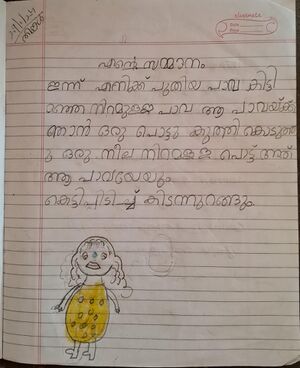 classmate
Date
Page
എന്റെ സമ്മാനം
ഇന്ന് എനിക്ക് പുതിയ പാവ കിട്ടി
മഞ്ഞ നിറമുള്ള പാവ ആ പാവയ്ക്ക്
ഞാൻ ഒരു പൊട്ടു കുത്തി കൊടുത്തു
ഒരു നീല നിറമുള്ള പൊട്ട്
ആ പാവയേയും
കെട്ടിപ്പിടിച്ച് കിടന്നുറങ്ങും